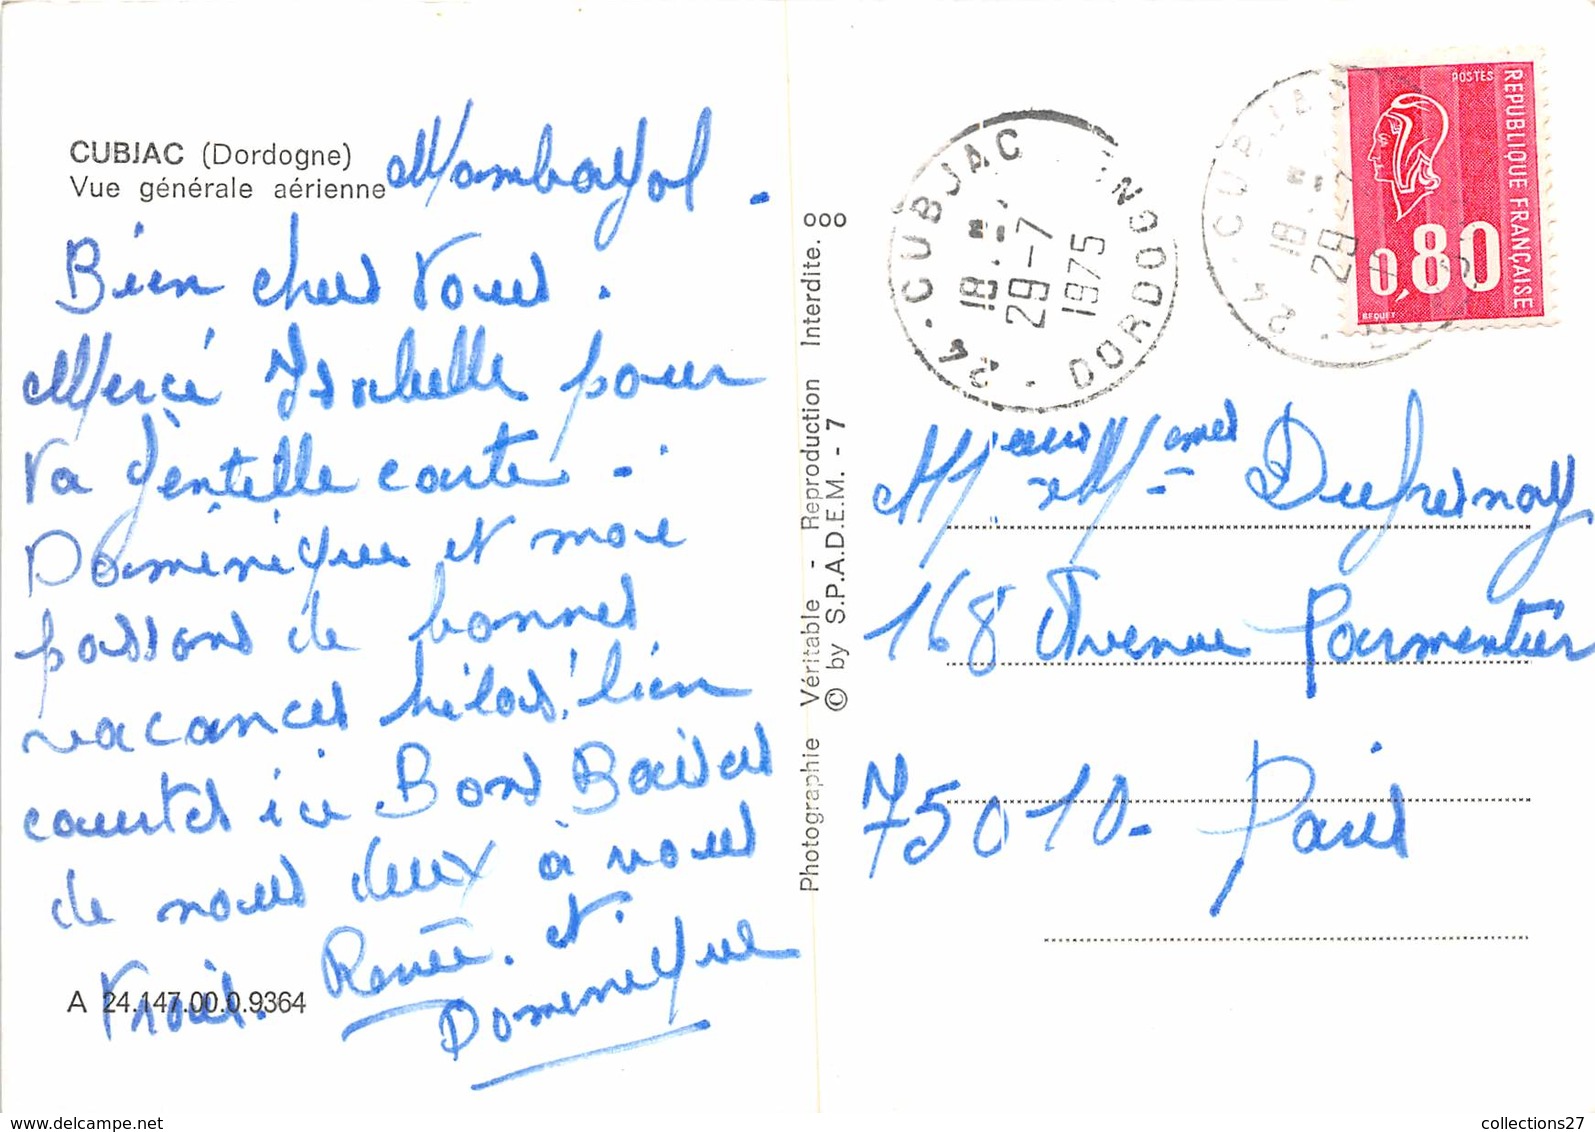 CUBJAC (Dordogne)
Vue générale aérienne
Mambayol -
Bien chers vous .
Merci Isabelle pour
ta gentille carte -
Dominique et moi
passons de bonnes
vacances hélas! bien
courtes ici Bons Baisers
de nous deux à vous
trois.
Renée . et.
Dominique
A 24.147.00.0.9364
Photographie Véritable - Reproduction Interdite.
© by S.P.A.D.E.M. - 7
24 CUBJAC DORDOGNE
18
29-7
1975
24 CUBJAC
18
29-7
POSTES
REPUBLIQUE FRANÇAISE
0,80
BEQUET
Dufresnoy
168 Avenue Parmentier
75010- Paris
delcampe.net
collections27